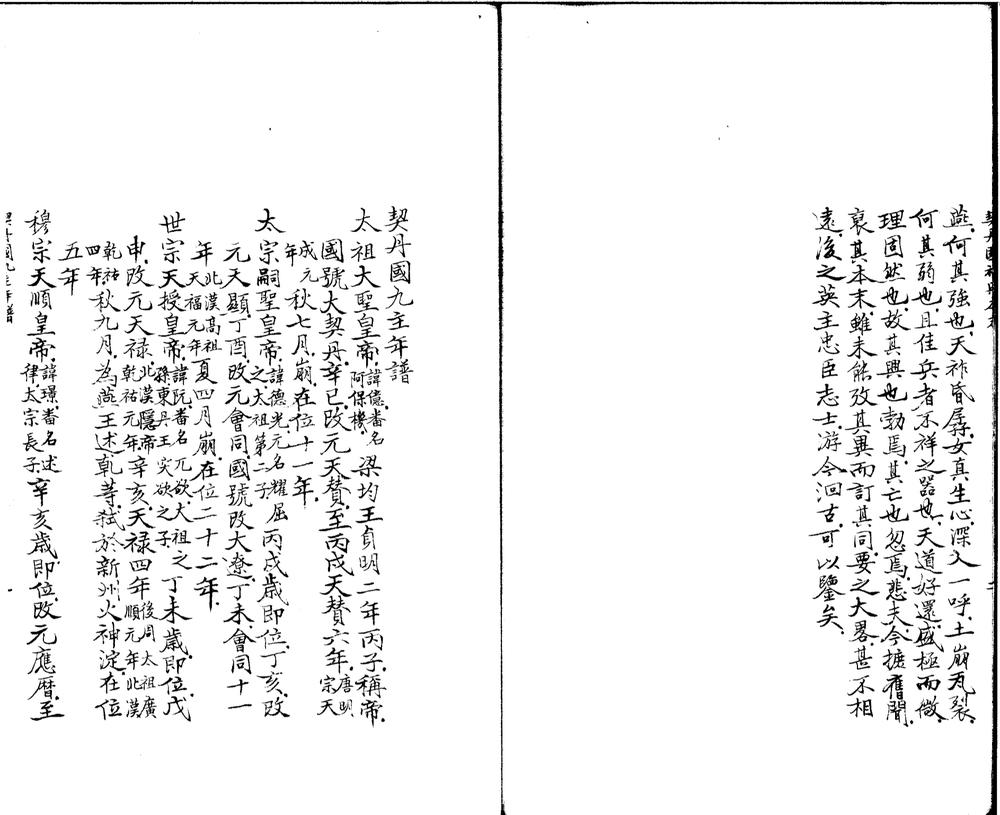 燕何其強也天祚昏孱女真生心深入一呼土崩瓦裂
何其弱也且佳兵者不祥之器也天道好還盛極而微
理固然也故其興也勃焉其亡也忽焉悲夫今摭舊聞
裒其本末雖未能攷其異而訂其同要之大畧甚不相
遠後之英主忠臣志士游今洄古可以鑒矣
契丹國九主年譜
太祖大聖皇帝諱億番名阿保機梁均王貞明二年丙子稱帝
國號大契丹辛巳改元天賛至丙戌天賛六年唐明宗天
成元年秋七月崩在位十一年
太宗嗣聖皇帝諱德光元名耀屈之太祖第二子丙戌歲即位丁亥改
元天顯丁酉改元會同國號改大遼丁未會同十一
年北漢高祖天福元年夏四月崩在位二十二年
世宗天授皇帝諱阮番名兀欲太祖之孫東丹王突欲之子丁未歲即位戊
申改元天禄北漢隱帝乾祐元年辛亥天禄四年後周太祖廣順元年北漢
乾祐四年秋九月為燕王述軋等弒於新州火神淀在位
五年
穆宗天順皇帝諱璟番名述律太宗長子辛亥歲即位改元應曆至